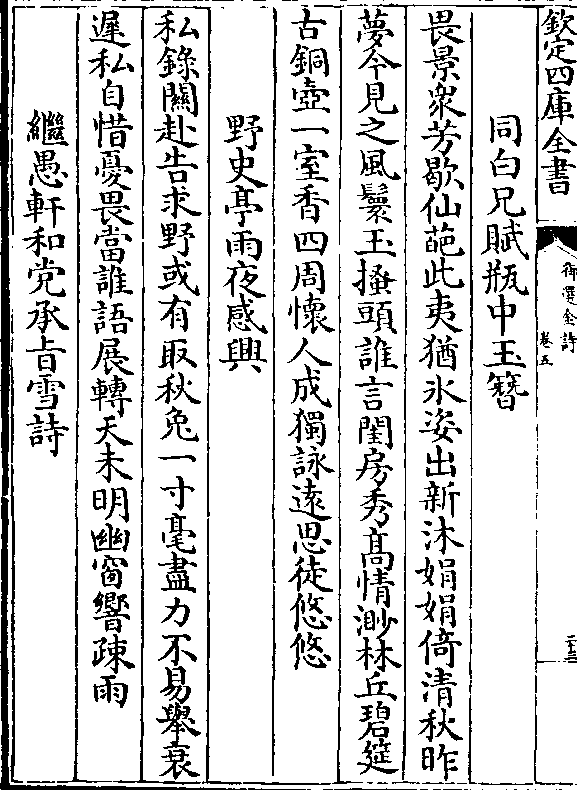 欽定四庫全書
御選金詩
卷五
二十三
同白兄賦瓶中玉簪
畏景衆芳歇仙葩此夷猶氷姿出新沐娟娟倚清秋昨
夢今見之風鬟玉搔頭誰言閨房秀高情渺林丘碧筵
古銅壺一室香四周懷人成獨詠遠思徒悠悠
野史亭雨夜感興
私錄關赴告求野或有取秋兔一寸毫盡力不易舉衰
遲私自惜憂畏當誰語展轉天未明幽窗響疎雨
繼愚軒和党承旨雪詩